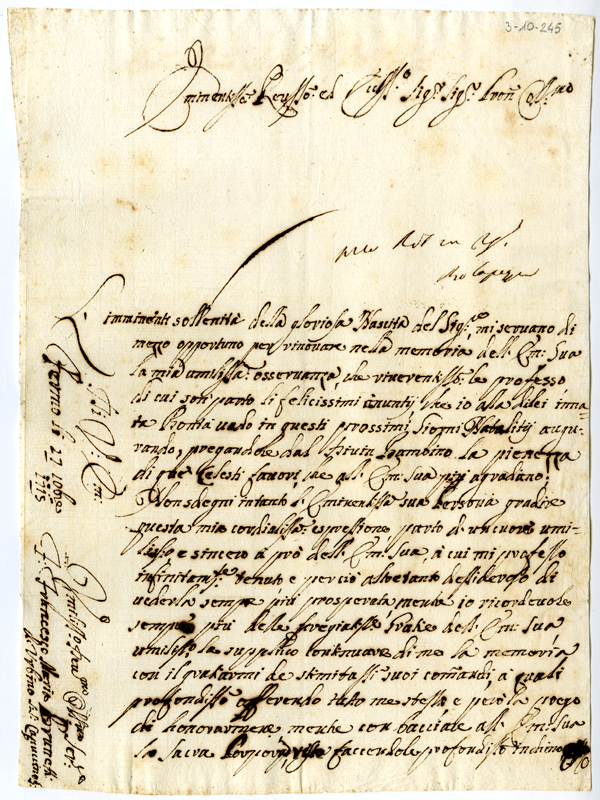 3-10-245
Eminentiss: Reviss:mo ed Sig:r Sig:r Pron Oss:mo
L'imminente sollenità della gloriosa Nascita del Sig:re mi servano di
mezzo opportuno per rinovare nella memoria dell'Em: Sua
la mia umiliss: osservanza, che riverentiss: le professo
di cui sott parto li felicissimi anuntij, che io alla di lei inna-
ta Bontà vado in questi prossimi giorni Natalitij augu-
rando, pregandole dal Divin Bambino la pienezza
di que' Celesti favori che all'Em: Sua più agradano:
Non sdegni intanto l'Eminentiss: sua Persona gradire
questa mia cordialiss: espressione, parto di un cuore umi-
liss:o e sincero a prò dell'Em: Sua, à cui mi professo
infinitam:te tenuto, e perciò altretanto desideroso di
vederla sempre più prosperata, mentre io ricordevole
sempre più delle Grazie dell'Em: Sua
umiliss: la supplico continuare di me la memoria
con il gratiarmi de stimatissi: suoi comandi, a quali
profondiss: offerendo tutto me stesso, e però la prego
di honorarmene, mentre con bacciare all'Em: Sua
la Sacra Porpora, faccendole profondis:o inchino
Di V: Em:
Fermo li 17 Xbre
1715
Umiliss:o
F: Francesco Maria